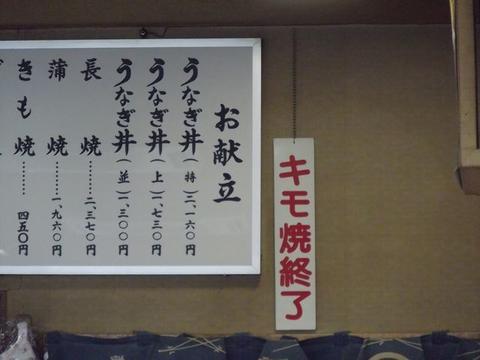 お献立
うなぎ丼(特)二、一六〇円
うなぎ丼(上)一、七三〇円
うなぎ丼(並)一、三〇〇円
長焼………二、三七〇円
蒲焼………一、九六〇円
きも焼………四五〇円
キモ焼終了